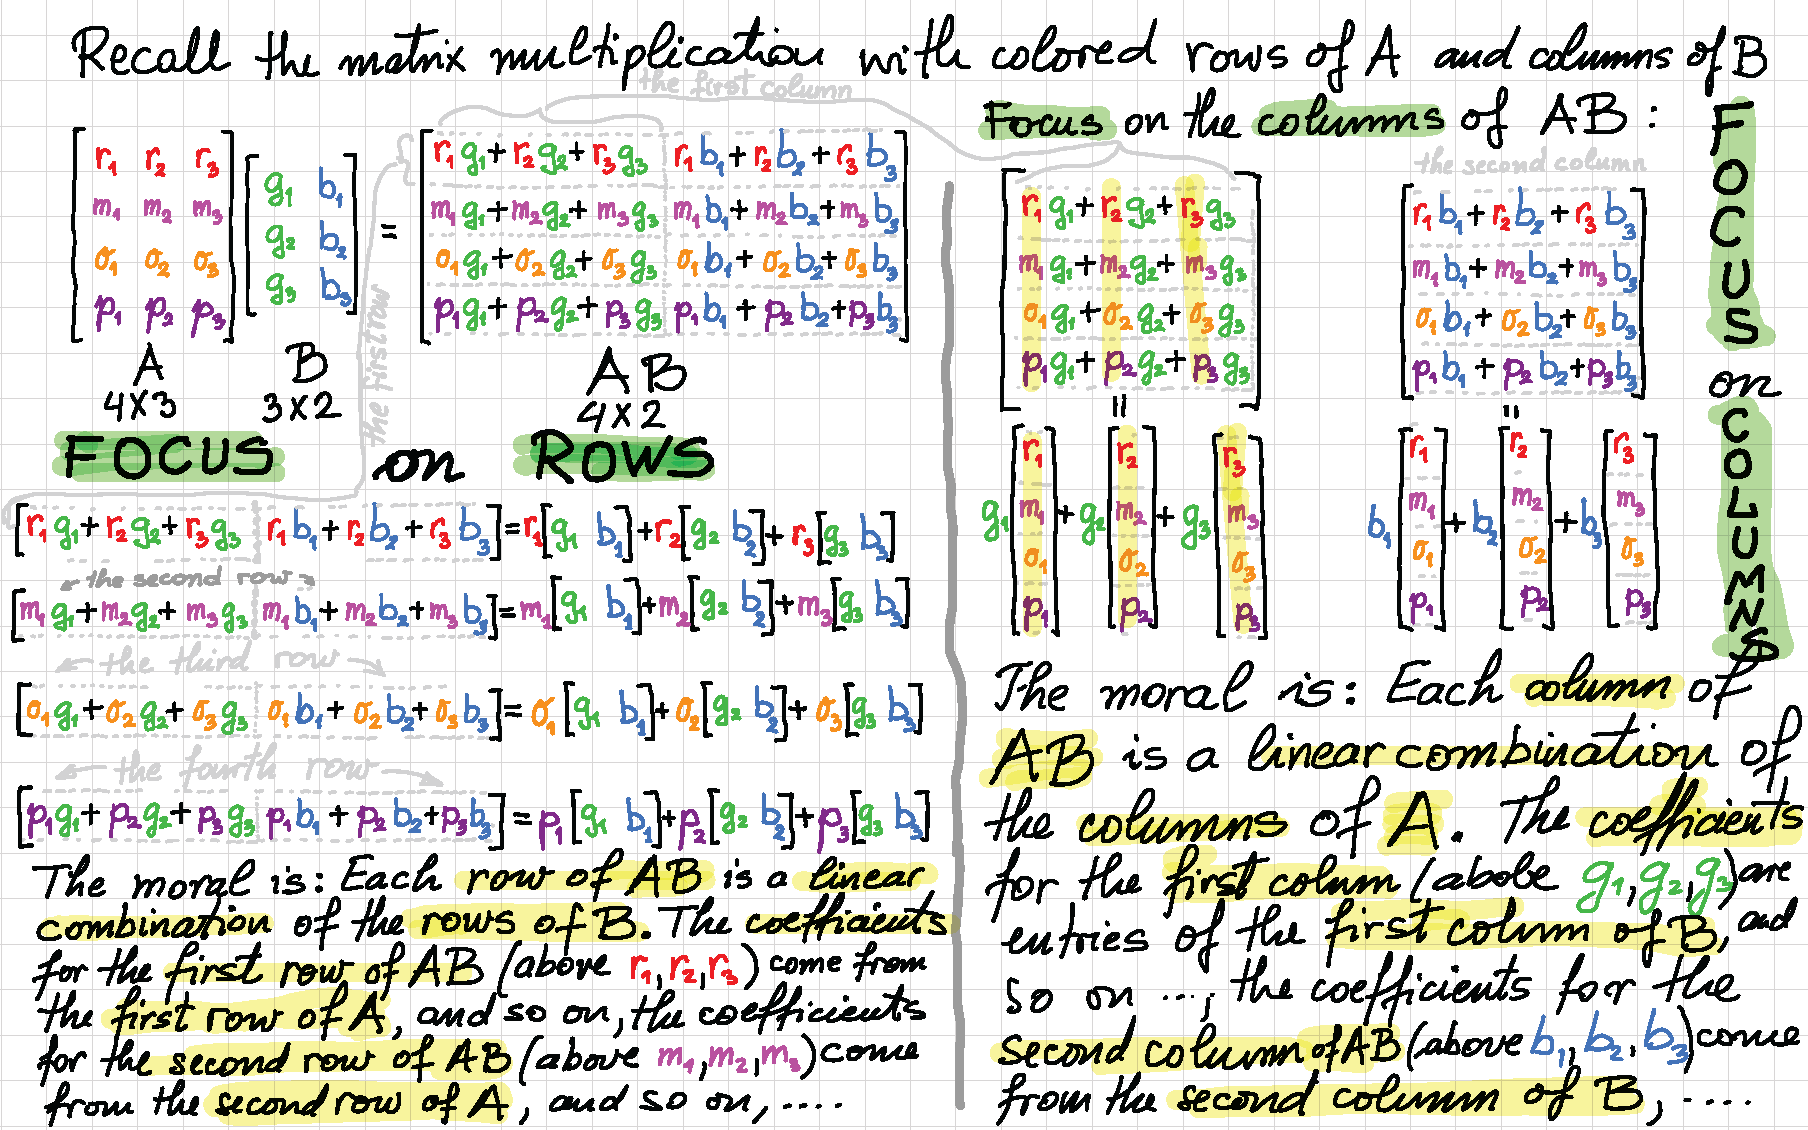 Recall the matrix multiplication with colored rows of A and columns of B
the first column
Focus on the columns of AB :
[r₁ r₂ r₃] [g₁ b₁] = [r₁g₁+r₂g₂+r₃g₃ r₁b₁+r₂b₂+r₃b₃]
[m₁ m₂ m₃] [g₂ b₂] [m₁g₁+m₂g₂+m₃g₃ m₁b₁+m₂b₂+m₃b₃]
[σ₁ σ₂ σ₃] [g₃ b₃] [σ₁g₁+σ₂g₂+σ₃g₃ σ₁b₁+σ₂b₂+σ₃b₃]
[p₁ p₂ p₃] [p₁g₁+p₂g₂+p₃g₃ p₁b₁+p₂b₂+p₃b₃]
A B AB
4×3 3×2 4×2
the first row
FOCUS on ROWS
[r₁g₁+r₂g₂+r₃g₃ r₁b₁+r₂b₂+r₃b₃]=r₁[g₁ b₁]+r₂[g₂ b₂]+r₃[g₃ b₃]
the second row
[m₁g₁+m₂g₂+m₃g₃ m₁b₁+m₂b₂+m₃b₃]=m₁[g₁ b₁]+m₂[g₂ b₂]+m₃[g₃ b₃]
the third row
[σ₁g₁+σ₂g₂+σ₃g₃ σ₁b₁+σ₂b₂+σ₃b₃]=σ₁[g₁ b₁]+σ₂[g₂ b₂]+σ₃[g₃ b₃]
the fourth row
[p₁g₁+p₂g₂+p₃g₃ p₁b₁+p₂b₂+p₃b₃]=p₁[g₁ b₁]+p₂[g₂ b₂]+p₃[g₃ b₃]
The moral is: Each row of AB is a linear
combination of the rows of B. The coefficients
for the first row of AB (above r₁,r₂,r₃) come from
the first row of A, and so on, the coefficients
for the second row of AB (above m₁,m₂,m₃) come
from the second row of A, and so on, ....
the second column
[r₁g₁+r₂g₂+r₃g₃] [r₁b₁+r₂b₂+r₃b₃]
[m₁g₁+m₂g₂+m₃g₃] [m₁b₁+m₂b₂+m₃b₃]
[σ₁g₁+σ₂g₂+σ₃g₃] [σ₁b₁+σ₂b₂+σ₃b₃]
[p₁g₁+p₂g₂+p₃g₃] [p₁b₁+p₂b₂+p₃b₃]
= =
[r₁] [r₂] [r₃] [r₁] [r₂] [r₃]
g₁[m₁]+g₂[m₂]+g₃[m₃] b₁[m₁]+b₂[m₂]+b₃[m₃]
[σ₁] [σ₂] [σ₃] [σ₁] [σ₂] [σ₃]
[p₁] [p₂] [p₃] [p₁] [p₂] [p₃]
FOCUS on COLUMNS
The moral is: Each column of
AB is a linear combination of
the columns of A. The coefficients
for the first colum (abobe g₁,g₂,g₃) are
entries of the first column of B, and
so on ..., the coefficients for the
second column of AB (above b₁,b₂,b₃) come
from the second column of B, ....